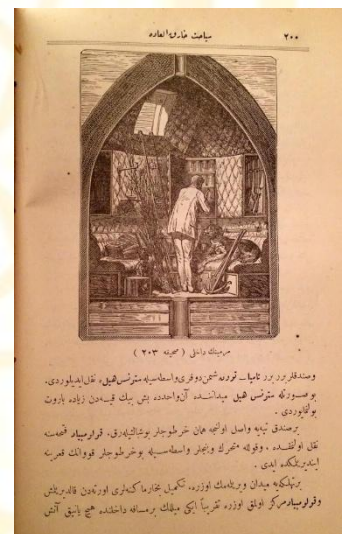 ٢٠٠ سیاحت خارق‌العاده
مرمینك داخلی ( صحیفه ٢٠٣ )
وصندقلر برر برر تامپا ـ تورنه شمن‌دوفری واسطه‌سیله ستونس هیل‌ه نقل ایدیلوردی.
بو صورتله ستونس هیل میداننده آن واحدده بش بیك قیه‌دن زیاده باروت
بولنمیوردی.
برصندق تپه‌یه واصل اولنجه همان خرطوجلر بوشالدیله‌رق، قولومبیاد فتحه‌سنه
نقل اولنمقده، وقوله متحرك وینجلر واسطه‌سیله بوخرطوجلر قویونك قعرینه
ایندیرلمکده ایدی.
برتهلکه‌یه میدان ویرلمامك اوزره، تکمیل بخار ماکنه‌لری اورته‌دن قالدیرلمش
وقولومبیاد مرکز اولمق اوزره تقریباً ایکی میللك بر مسافه داخلنده هیچ یانیق آتش